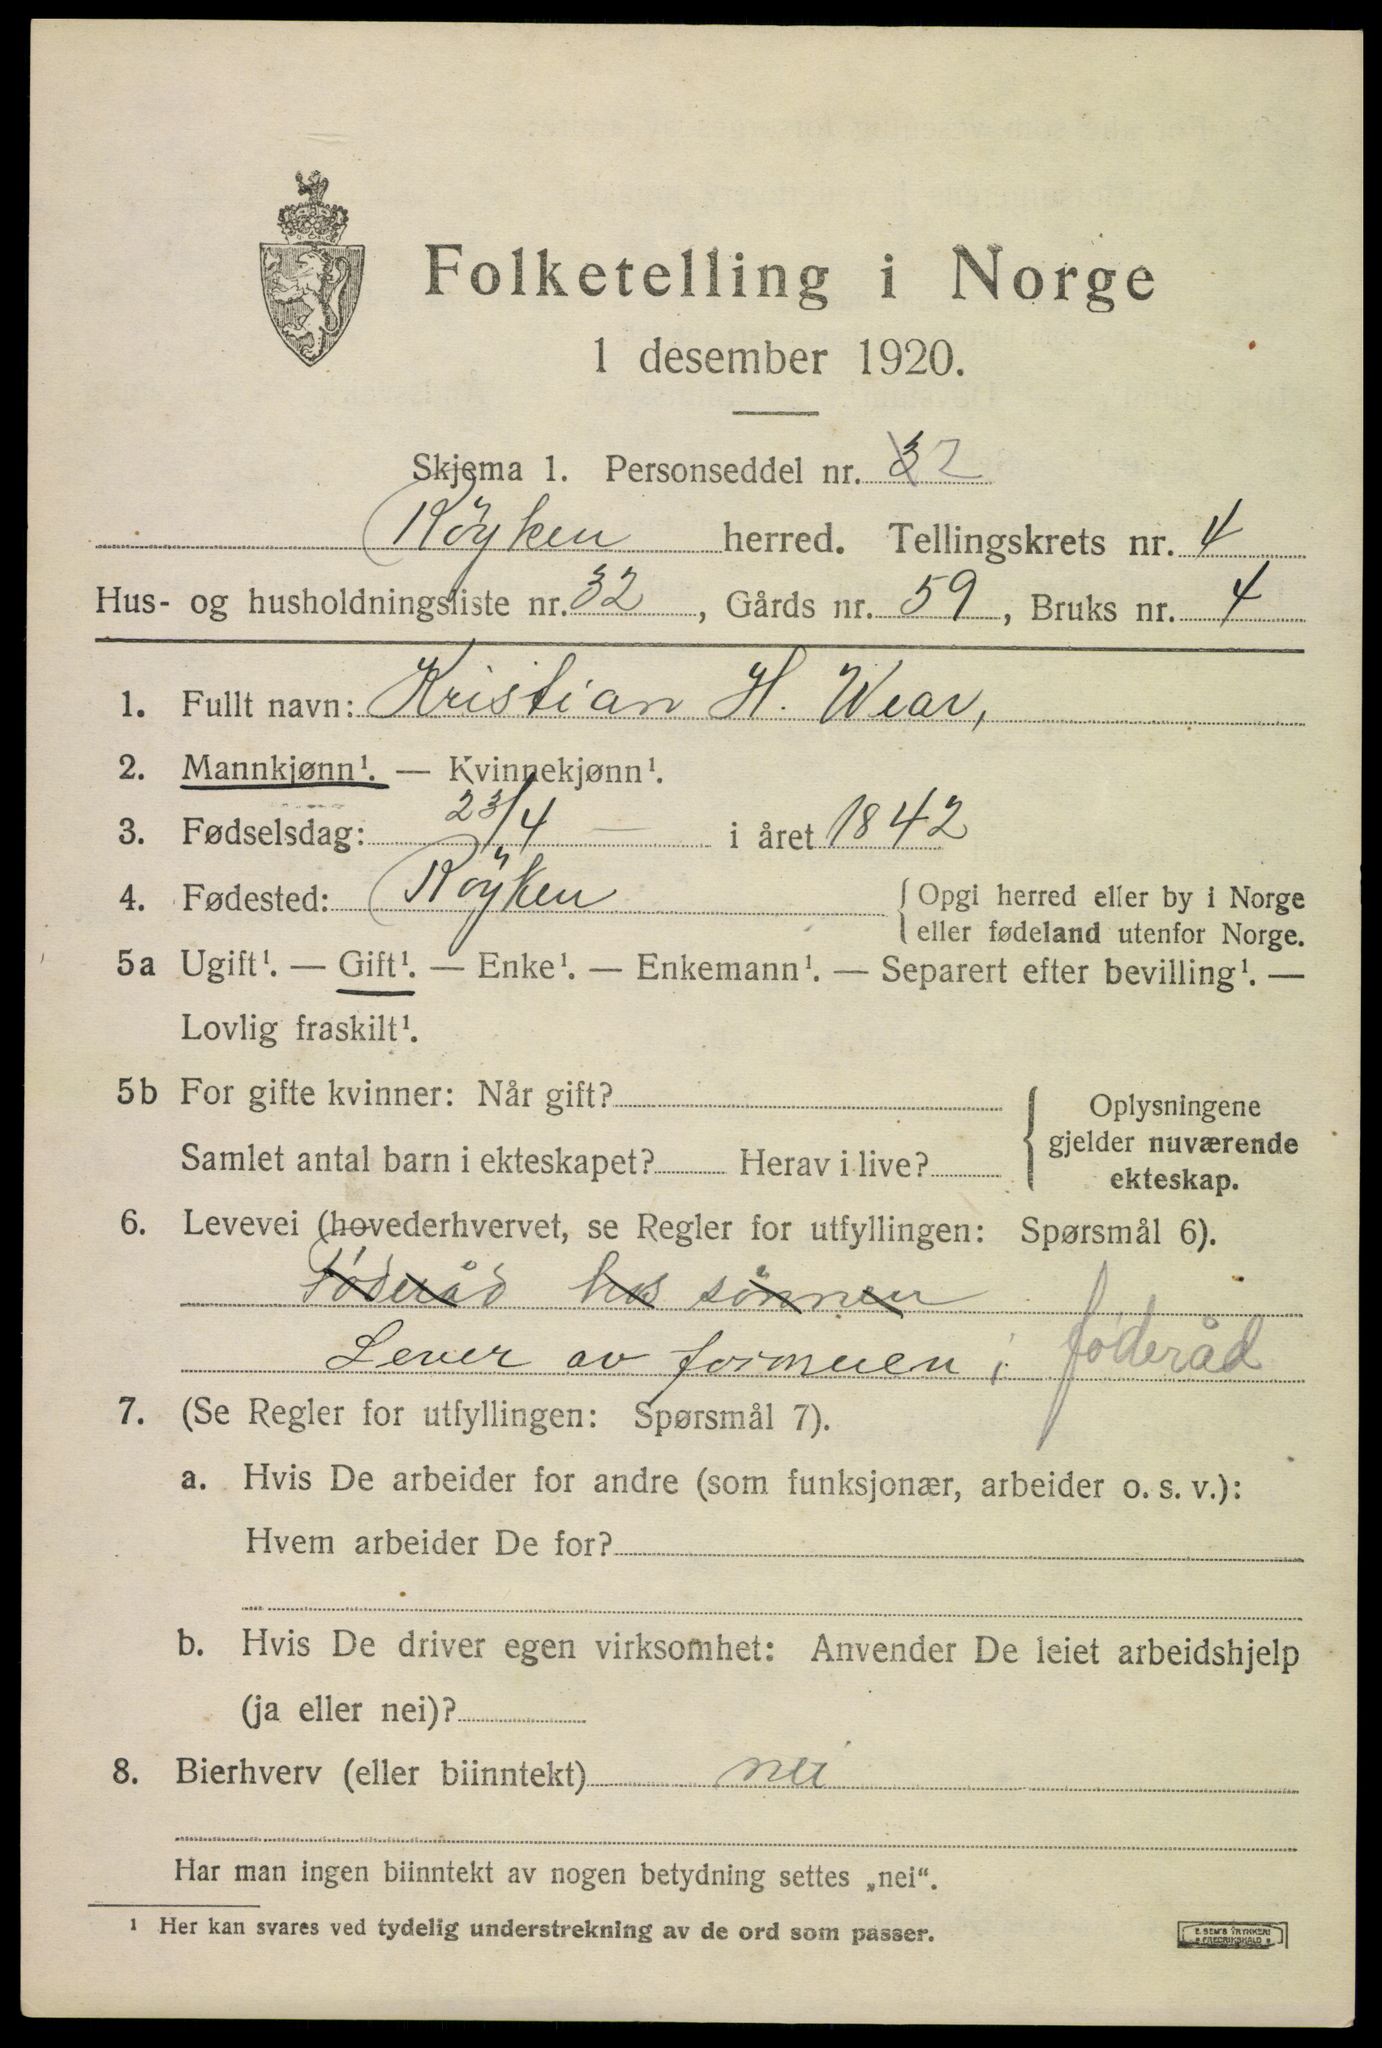 Folketelling i Norge
1 desember 1920.
Skjema 1. Personseddel nr. 32
Röyken herred. Tellingskrets nr. 4
Hus- og husholdningsliste nr. 32, Gårds nr. 59, Bruks nr. 4
1. Fullt navn: Kristian H. Wear,
2. Mannkjønn¹. — Kvinnekjønn¹.
3. Fødselsdag: 23/4 — i året 1842
4. Fødested: Röyken { Opgi herred eller by i Norge
eller fødeland utenfor Norge.
5a Ugift¹. — Gift¹. — Enke¹. — Enkemann¹. — Separert efter bevilling¹. —
Lovlig fraskilt¹.
5b For gifte kvinner: Når gift?
Samlet antal barn i ekteskapet? Herav i live?
{ Oplysningene
gjelder nuværende
ekteskap.
6. Levevei (hovederhvervet, se Regler for utfyllingen: Spørsmål 6).
Föderåd hos sønnen
Lever av formuen i føderåd
7. (Se Regler for utfyllingen: Spørsmål 7).
a. Hvis De arbeider for andre (som funksjonær, arbeider o. s. v.):
Hvem arbeider De for?
b. Hvis De driver egen virksomhet: Anvender De leiet arbeidshjelp
(ja eller nei)?
8. Bierhverv (eller biinntekt) nei
Har man ingen biinntekt av nogen betydning settes „nei“.
¹ Her kan svares ved tydelig understrekning av de ord som passer.
E. SEM'S TRYKKERI
FREDRIKSHALD